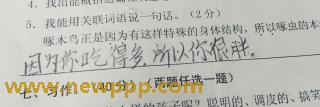 5. 我能用关联词语说一句话。(2分)
啄木鸟正是因为有这样特殊的身体结构,所以啄虫的本
因为你吃得多,所以你很胖。
www.newppp.com
七、习作 (40分) (两题任选一题)
聪明的、调皮的、搞笑